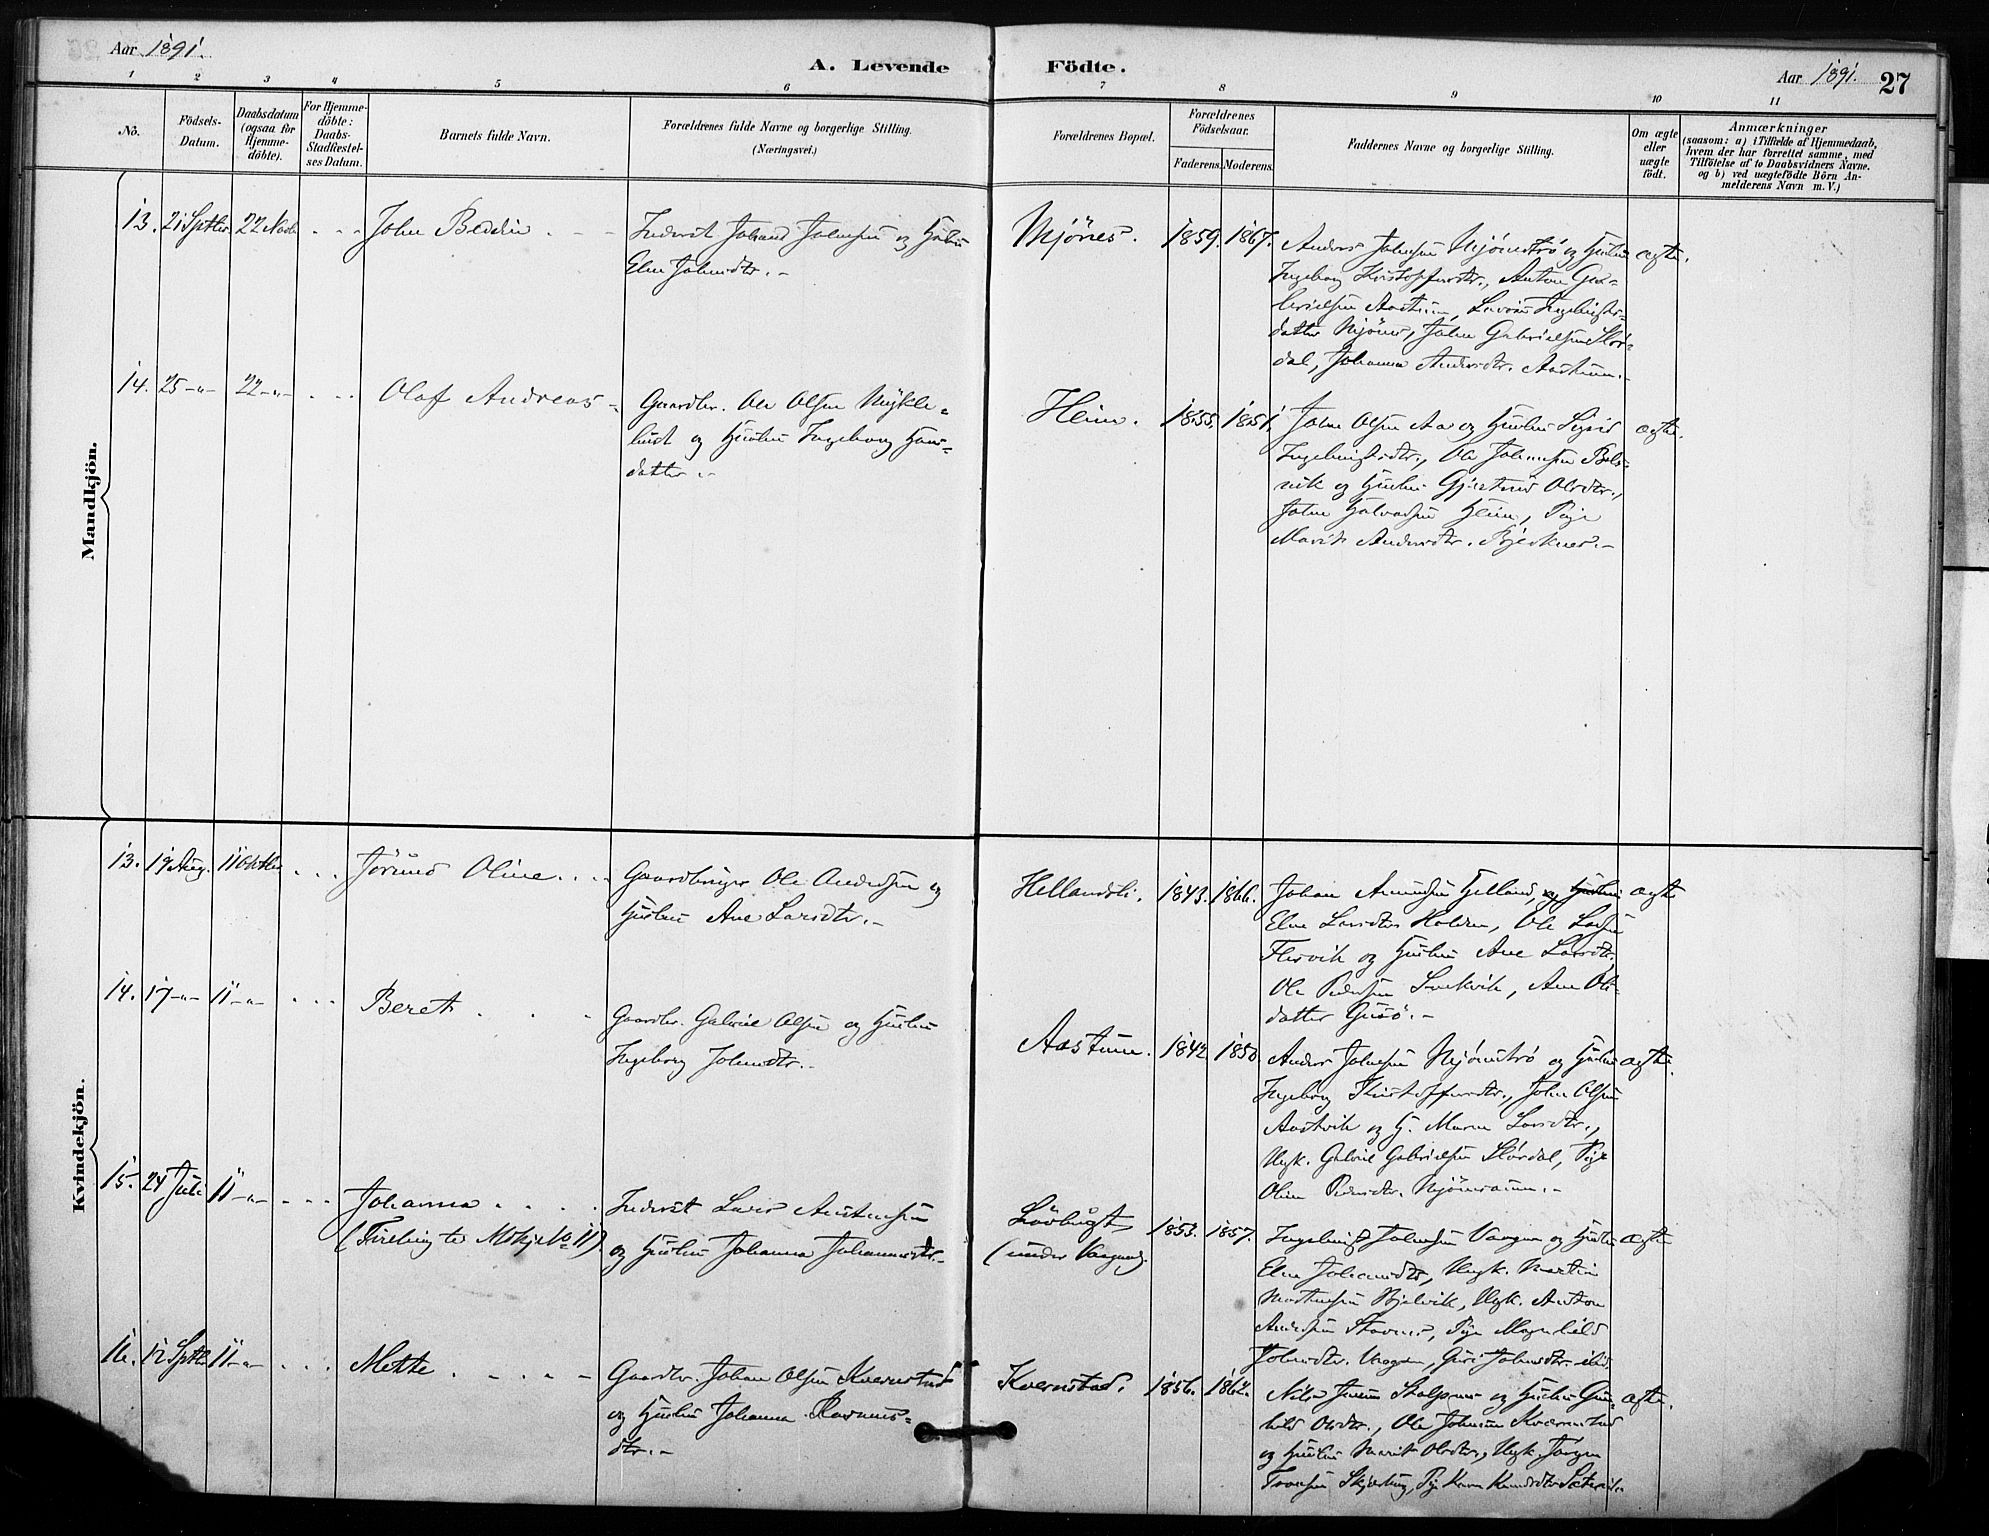 Aar 1891.
A. Levende Födte.
Aar 1891. 27
1 2 3 4 5 6 7 8 9 10 11
No.
Födsels-Datum.
Daabsdatum (ogsaa for Hjemme-döbte).
For Hjemme-döbte: Daabs-Stadfæstel-ses Datum.
Barnets fulde Navn.
Forældrenes fulde Navne og borgerlige Stilling.
(Næringsvei.)
Forældrenes Bopæl.
Forældrenes Födselsaar.
Faderens. Moderens.
Faddernes Navne og borgerlige Stilling.
Om ægte eller uægte födt.
Anmærkninger
(saasom: a) i Tilfælde af Hjemmedaab,
hvem der har forrettet samme, med
Tilföielse af to Daabsvidners Navne.
og b) ved uægtefödte Börn An-
melderens Navn m. V.)
Mandkjön.
13. 21 Septbr. 22 Novb.
John
Inderst Johan Johnsen og Hustru
Elen Johnsdtr.
Mjönes. 1859. 1867.
Anders Johnsen Mjöneströ og Hustru
Ingeborg Kristoffersdtr., Anton Ga-
brielsen Aastum, Ingebrigts-
datter Mjönes, John Gabrielsen Slör-
dal, Johanna Andersdtr. Aastum.
ægte.
14. 25-"- 22-"-
Olaf Andreas
Gaardbr. Ole Olsen Mykle-
bust og Hustru Ingeborg Hans-
datter.
Heim. 1855. 1851.
John Olsen Aa og Hustru Sigrid
Ingebrigtsdtr., Ole Johansen Bels-
vik og Hustru Gjertrud Olsdtr.,
John Halvorsen Heim, Pige
Marit Andersdtr.
ægte.
Kvindekjön.
13. 19 Aug. 11 Oktbr.
Jörund Oline
Gaardbruger Ole Andersen og
Hustru Ane Larsdtr.
Hellandsli. 1843. 1866.
Johan Amundsen Helland, og Hustru
Elen Larsdtr Holden, Ole Larsen
Flesvik og Hustru Ane Larsdtr,
Ole Pedersen Snekvik, Ane Ols-
datter
ægte
14. 17-"- 11-"-
Beret
Gaardbr. Gabriel Olsen og Hustru
Ingeborg Johnsdtr.
Aastum. 1842 1850
Anders Johnsen Mjöneströ og Hustru
Ingeborg Kristoffersdtr., John Olsen
Aastvik og H. Maren Larsdtr.,
Ungk. Gabriel Gabrielsen Slördal, Pige
Oline Pedersdtr. Mjönesaunn.
ægte.
15. 24 Juli 11-"-
Johanna
(Tvilling til Mskj. No 11)
Inderst Lars Antonsen
og Hustru Johanna Johannesdtr.
Lövbugt
(under Vaagen). 1853. 1857.
Ingebrigt Johnsen Vaagen og Hustru
Elen Johansdtr, Ungk. Martin
Mortensen Bjelvik, Ungk. Anton
Andersen Stavnes, Pige Magnhild
Johnsdtr. Vaagen, Guri Johnsdtr. ibid.
ægte
16. 12 Septbr 11-"-
Mette
Gaardbr. Johan Olsen Kvernstad
og Hustru Johanna Rasmus-
dtr.
Kvernstad. 1856. 1862.
Nils Jensen og Hustru Gun-
hild Olsdtr., Ole Johnsen Kvernstad
og Hustru Marit Olsdtr., Ungk. Jörgen
Tronsen Skjærling, Pige Karen Knudsdtr
ægte.